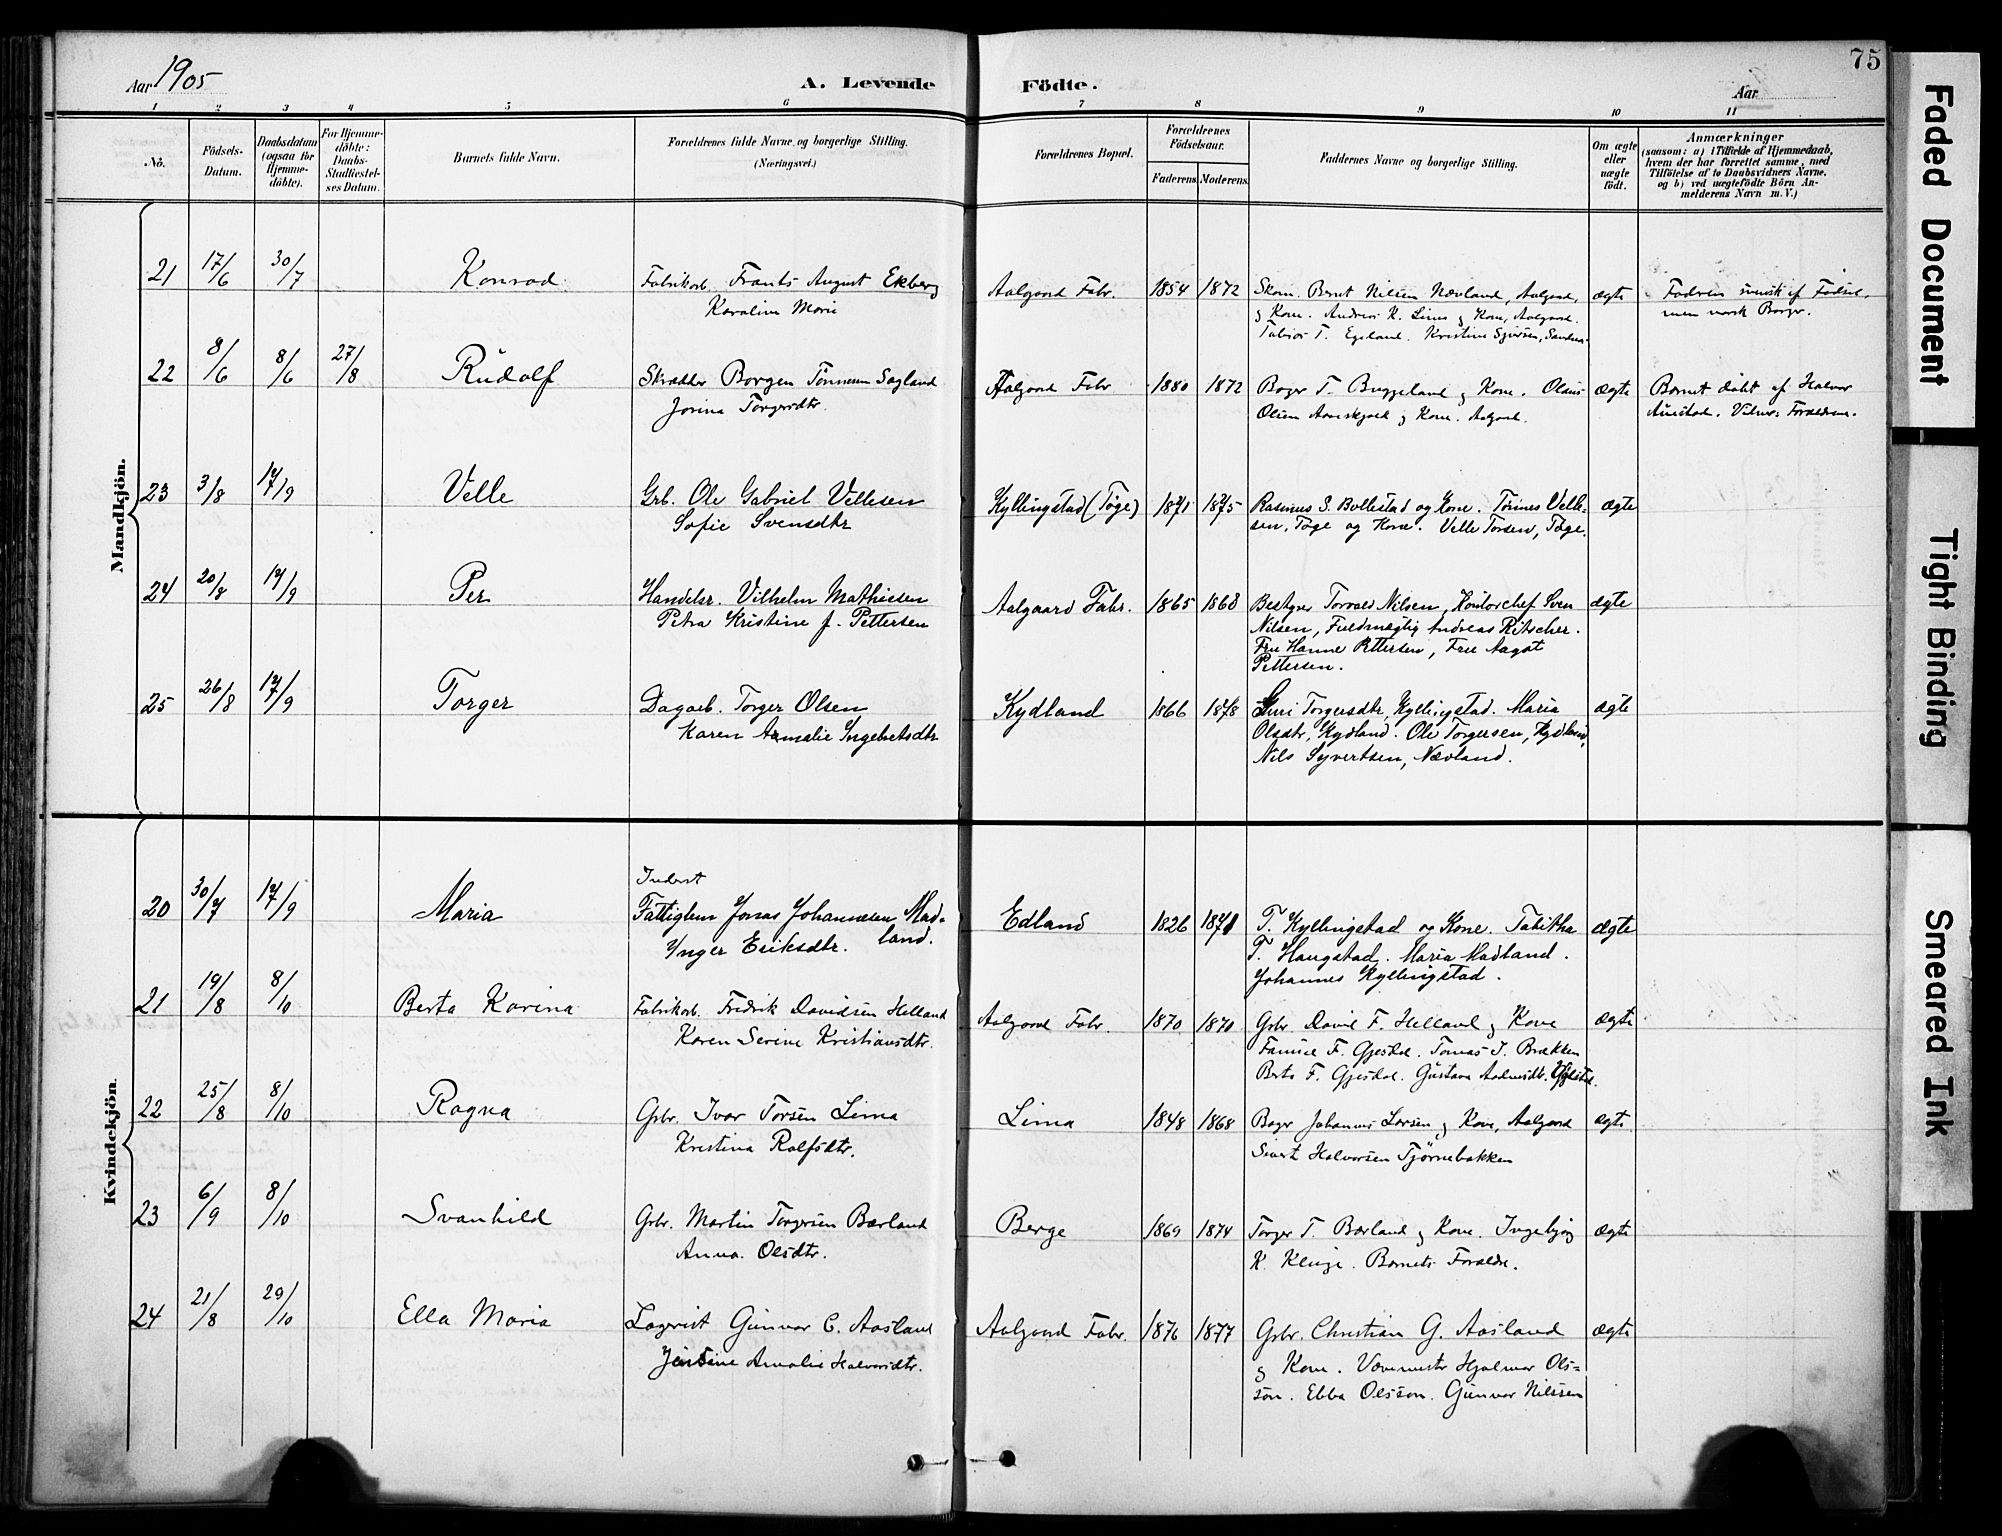 Aar 1905
A. Levende
Födte.
Aar
75
1 2 3 4 5 6 7 8 9 10 11
No.
Födsels-
Datum.
Daabsdatum
(ogsaa for
Hjemme-
döbte).
For Hjemme-
döbte:
Daabs-
Stadfæstel-
ses Datum.
Barnets fulde Navn.
Forældrenes fulde Navne og borgerlige Stilling.
(Næringsvei.)
Forældrenes Bopæl.
Forældrenes
Födselsaar.
Faderens. Moderens.
Faddernes Navne og borgerlige Stilling.
Om ægte
eller
uægte
födt.
Anmærkninger
(saasom: a) i Tilfælde af Hjemmedaab,
hvem der har forrettet samme, med
Tilföielse af to Daabsvidners Navne.
og b) ved uægtefödte Börn An-
melderens Navn m. V.)
Mandkjön.
21 17/6 30/7 Konrad Fabrikarb. Frants August Ekberg
Karoline Marie
Aalgaard Fabr. 1854 1872 Skom. Bernt Nilsen Nævland, Aalgaard,
& Kone. Andreas K. Lima & Kone, Aalgaard.
Tobias T. Egeland. Kristine Sjursen, Sandnes.
ægte Faderen svensk af Fødsel,
men norsk Borger.
22 8/6 8/6 27/8 Rudolf Skrædder Borgen Tønnesen Sagland
Jorina Torgersdtr.
Aalgaard Fabr. 1880 1872 Bager T. Bryggeland & Kone. Olaus
Olsen Aareskjold & Kone. Aalgaard.
ægte Barnet døbt af Halvor
Auestad. Vidner: Forældrene.
23 3/8 17/9 Velle Grb. Ole Gabriel Vellesen
Sofie Svensdtr
Kyllingstad (Tøge) 1871 1875 Rasmus S. Bollestad og Kone. Tønnes Velle-
sen, Tøge og Kone. Velle Torsen, Tøge.
ægte
24 20/8 17/9 Per Handelsr. Vilhelm Mathiesen
Petra Kristine f. Pettersen
Aalgaard Fabr. 1865 1868 Bestyrer Torvald Nilsen, Kontorchef Sven
Nilsen, Fuldmægtig Andreas Ritscher.
Fru Hanne Pettersen, Fru Aagot
Pettersen.
ægte
25 26/8 17/9 Torger Dagarb. Torger Olsen
Karen Amalie Ingebretsdtr
Kydland 1866 1878 Guri Torgersdtr, Kyllingstad. Maria
Olsdtr, Kydland. Ole Torgersen, Kydland,
Nils Syvertsen, Nævland.
ægte
Kvindekjön.
20 30/7 17/9 Maria Inderst
Fattiglem Jonas Johannesen Mad-
land.
Ynger Eriksdtr.
Edland 1826 1871 T. Kyllingstad og Kone. Tabitha
T. Haugstad. Maria Madland.
Johannes Kyllingstad.
ægte
21 19/8 8/10 Berta Karina Fabrikarb. Fredrik Davidsen Helland
Karen Serine Kristiansdtr.
Aalgaard Fabr. 1870 1870 Grbr. David F. Helland & Kone
F. Gjesdal. Tomas J. Brækken
Berta F. Gjesdal. Gustava
ægte
22 25/8 8/10 Ragna Grbr. Ivar Torsen Lima
Kristina Rolfsdtr.
Lima 1848 1868 Bager Johannes Larsen & Kone, Aalgaard
Sivert Halvorsen Tjørnebakken
ægte.
23 6/9 8/10 Svanhild Grbr. Martin Torgersen Bærland
Anna Olsdtr.
Berge 1869 1874 Torger T. Bærland & Kone. Ingebjørg
K. Kluge. Barnets Forældre.
ægte
24 21/8 29/10 Ella Maria Lagerist Gunvar C. Aasland
Jensine Amalie Halvorsdtr.
Aalgaard Fabr. 1876 1877 Grbr. Christian G. Aasland
& Kone. Vævemester Hjalmar Ols-
son. Ebba Olsson. Gunvar Nilssen
ægte
Faded Document
Tight Binding
Smeared Ink